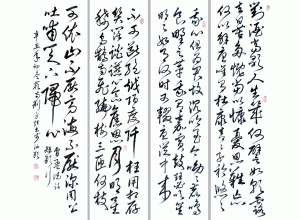 對酒當歌人生幾何譬如朝露
去日苦多慨當以慷憂思難忘
何以解憂唯有杜康青青子衿悠
悠我心但為君故沉吟至今呦呦鹿鳴
食野之苹我有嘉賓鼓瑟吹笙
明明如月何時可掇憂從中來
不可斷絕越陌度阡枉用相存
契闊談讌心念舊恩月明星
稀烏鵲南飛繞樹三匝何枝
可依山不厭高海不厭深周公
吐哺天下歸心
曹操詩
短歌行
辛丑年初冬